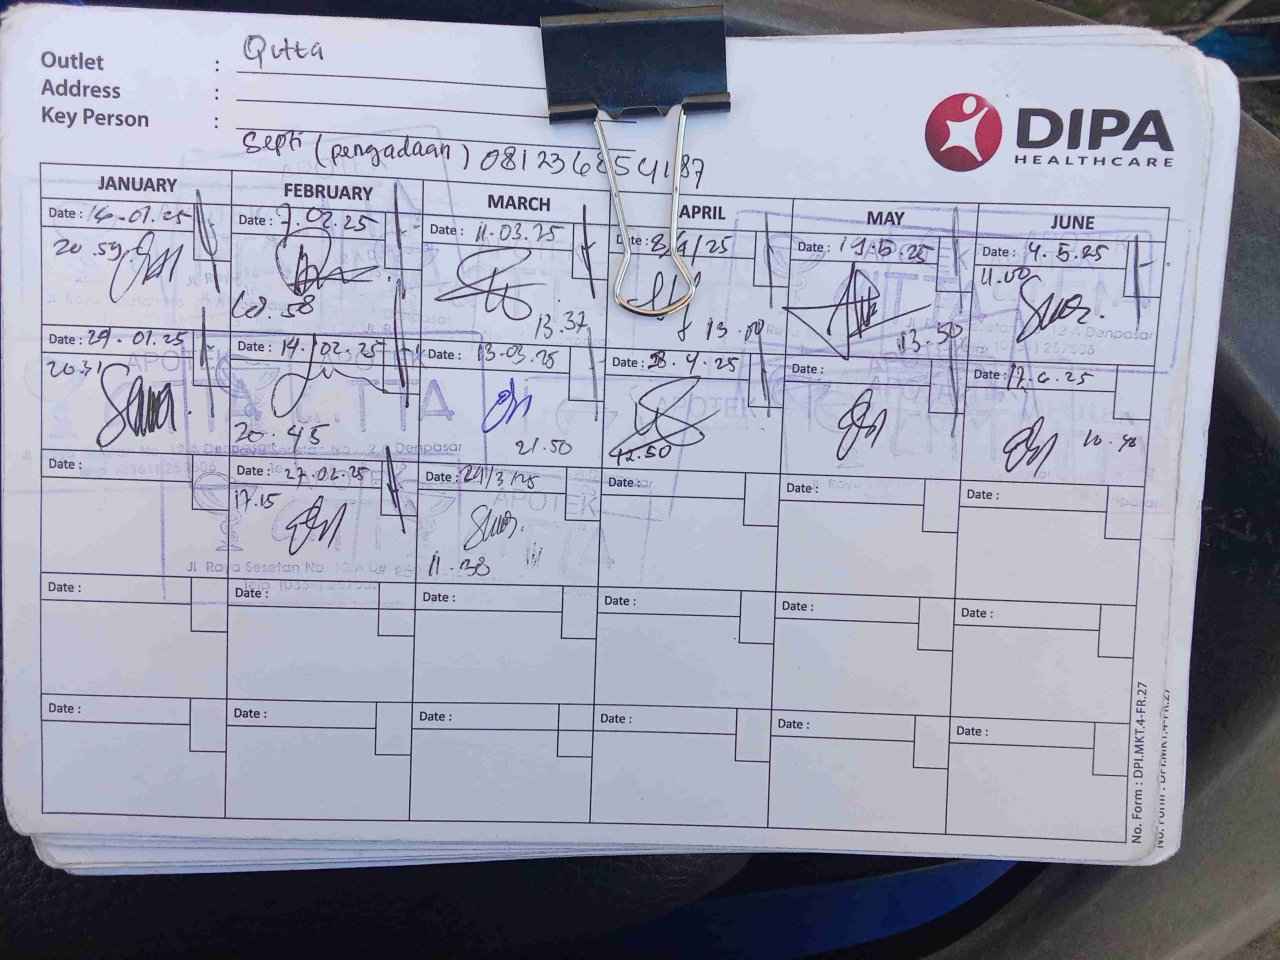 Outlet : Qutta
Address :
Key Person :
Septi (pengadaan) 081236854187
DIPA
HEALTHCARE
JANUARY FEBRUARY MARCH APRIL MAY JUNE
Date : 16-01.25 Date : 7.02.25 Date : 11-03.25 Date : 8/4/25 Date : 19.5.25 Date : 4.5.25
20.59 18.58 13.37 13.00 13.50 11.00
Date : 29.01.25 Date : 14.02.25 Date : 13-03.25 Date : 23.4.25 Date : Date : 17.6.25
20.31 20.45 21.50 12.50 10.40
Date : Date : 27.02.25 Date : 24/3/25 Date : Date : Date :
17.15 11.38
Date : Date : Date : Date : Date : Date :
Date : Date : Date : Date : Date : Date :
APOTEK
Jl. Raya Sesetan No. 12 A Denpasar
No. Form : DPI.MKT.4-FR.27